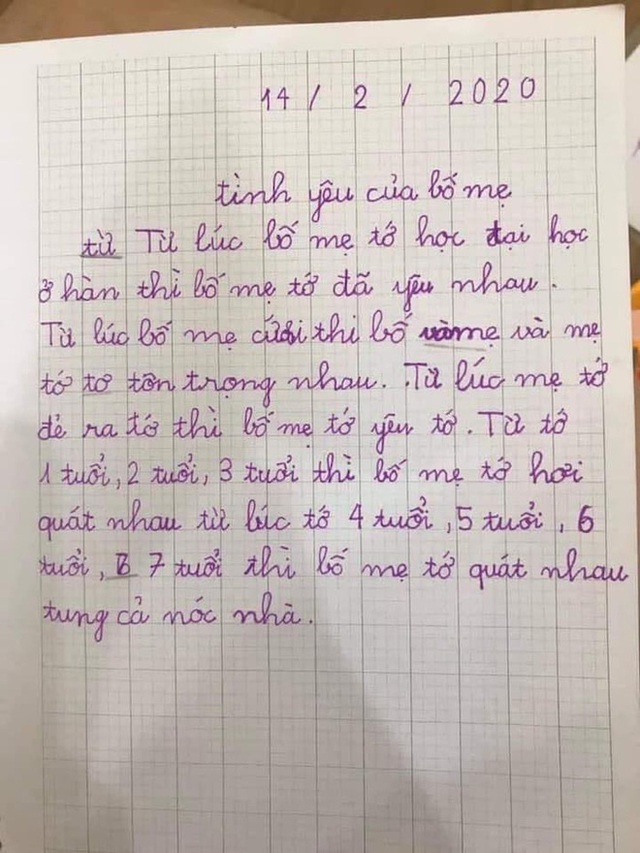 14 / 2 / 2020
tình yêu của bố mẹ
từ Từ lúc bố mẹ tớ học đại học
ở hàn thì bố mẹ tớ đã yêu nhau.
Từ lúc bố mẹ cưới thì bố vàmẹ và mẹ
tớ tơ tôn trọng nhau. Từ lúc mẹ tớ
đẻ ra tớ thì bố mẹ tớ yêu tớ. Từ tớ
1 tuổi, 2 tuổi, 3 tuổi thì bố mẹ tớ hơi
quát nhau từ lúc tớ 4 tuổi, 5 tuổi, 6
tuổi, 7 tuổi thì bố mẹ tớ quát nhau
tung cả nóc nhà.